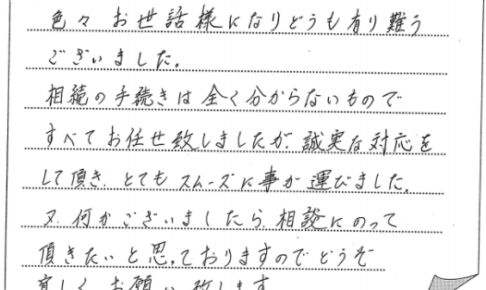 色々 お世話様になりどうも有り難う
ございました。
相続の手続きは全く分からないもので
すべてお任せ致しましたが、誠実な対応を
して頂き、とてもスムーズに事が運びました。
又、何かございましたら、相談にのって
頂きたいと思っておりますのでどうぞ
宜しく お願い致します